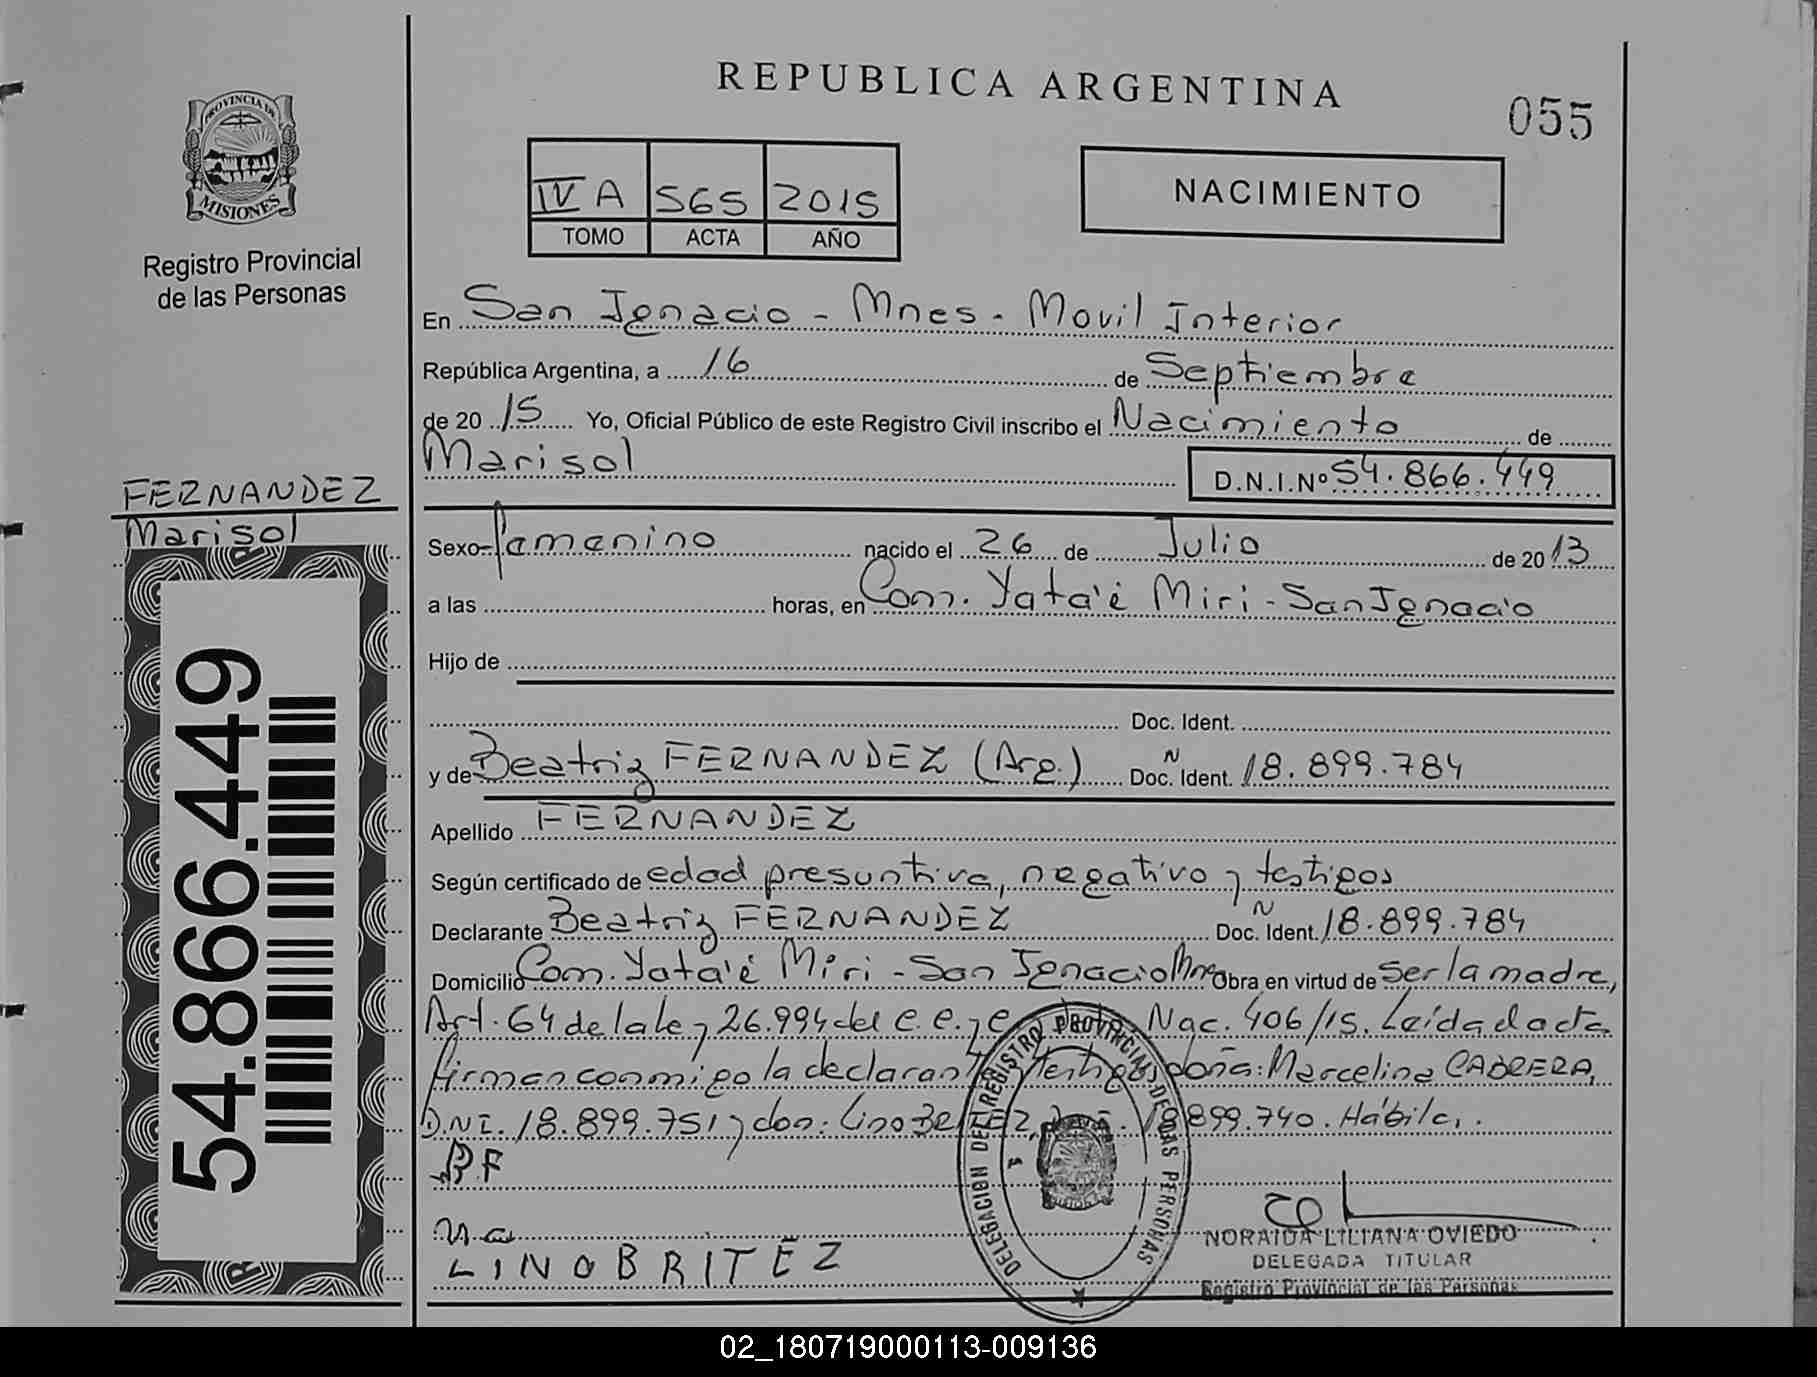 REPUBLICA ARGENTINA
055
PROVINCIA DE
MISIONES
Registro Provincial
de las Personas
IV A 565 2015
TOMO ACTA AÑO
NACIMIENTO
En San Ignacio - Mnes - Movil Interior
República Argentina, a 16 de Septiembre
de 20 15 Yo, Oficial Público de este Registro Civil inscribo el Nacimiento de
Marisol D.N.I.Nº 54.866.449
FERNANDEZ
Marisol
54.866.449
Sexo femenino nacido el 26 de Julio de 20 13
a las horas, en Com. Yata'i Miri - San Ignacio
Hijo de
Doc. Ident.
y de Beatriz FERNANDEZ (Arg.) Doc. Ident. N 18.899.784
Apellido FERNANDEZ
Según certificado de edad presuntiva, negativo y testigos
Declarante Beatriz FERNANDEZ Doc. Ident. N 18.899.784
Domicilio Com. Yata'i Miri - San Ignacio Mnes Obra en virtud de ser la madre,
Art. 64 de la ley 26.994 del c.c. y c. Nac. 406/15. Leída el acta
firman conmigo la declarante y testigos doña: Marcelina CABRERA,
D.N.I. 18.899.751 y don: Lino 899.740. Hábiles.
B.F
LINO BRITEZ
DELEGACION DEL REGISTRO PROVINCIAL DE LAS PERSONAS
NORAIDA LILIANA OVIEDO
DELEGADA TITULAR
Registro Provincial de las Personas
02_180719000113-009136